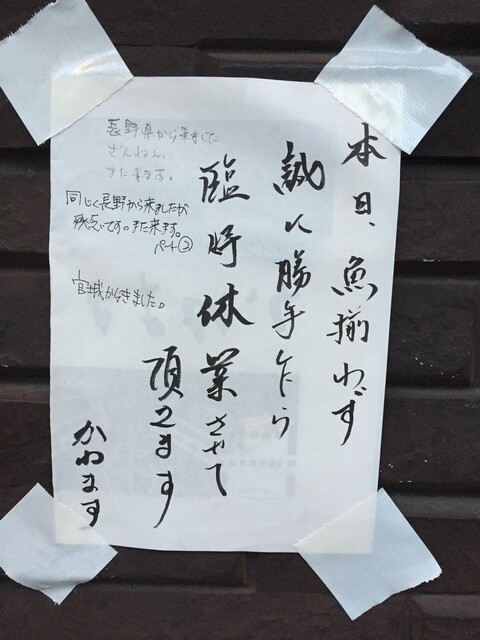 本日、魚揃わず
誠に勝手乍ら
臨時休業させて
頂きます
かねます
長野県から来ました
ざんねん。
また来ます。
同じく長野から来ましたが
残念です。また来ます。
パート②
宮城からきました。